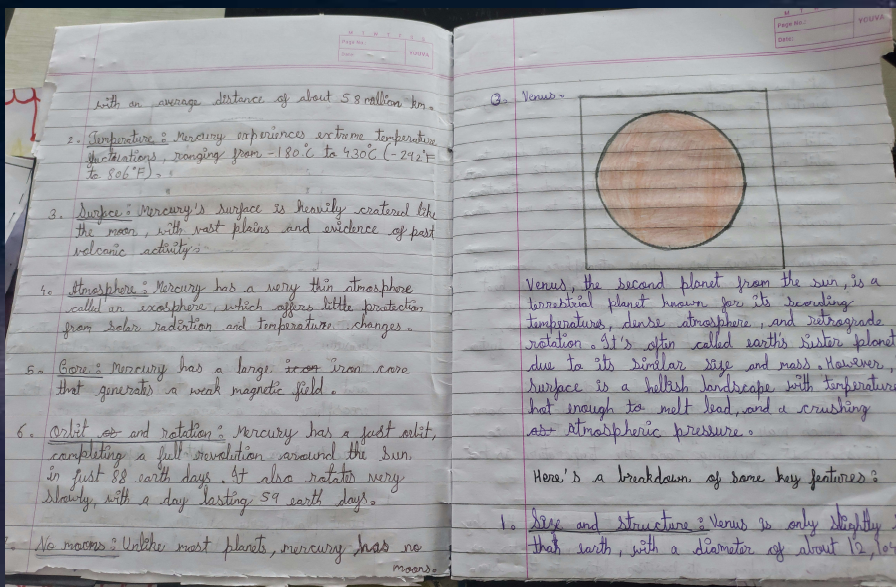 Page No.:
Date:
YOUVA
with an average distance of about 58 million km.
2. Temperature : Mercury experiences extreme temperature
fluctuations, ranging from -180°C to 430°C (-292°F
to 806°F).
3. Surface : Mercury's surface is heavily cratered like
the moon, with vast plains and evidence of past
volcanic activity.
4. Atmosphere : Mercury has a very thin atmosphere
called an exosphere, which offers little protection
from solar radiation and temperature changes.
5. Core : Mercury has a large iron core
that generates a weak magnetic field.
6. Orbit and rotation : Mercury has a fast orbit,
completing a full revolution around the sun
in just 88 earth days. It also rotates very
slowly, with a day lasting 59 earth days.
No moons : Unlike most planets, mercury has no
moons.
Page No.:
Date:
YOUVA
Venus-
Venus, the second planet from the sun, is a
terrestrial planet known for its scording
temperatures, dense atmosphere, and retrograde
rotation. It's often called earth's sister planet
due to its similar size and mass. However,
surface is a hellish landscape with temperature
hot enough to melt lead, and a crushing
atmospheric pressure.
Here's a breakdown of some key features :
1. Size and structure : Venus is only slightly
that earth, with a diameter of about 12,104